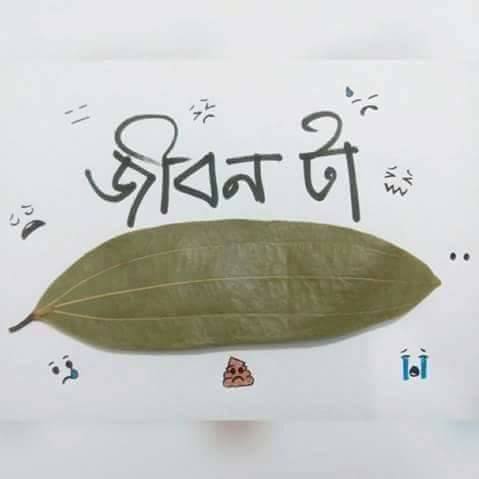 জীবন টা